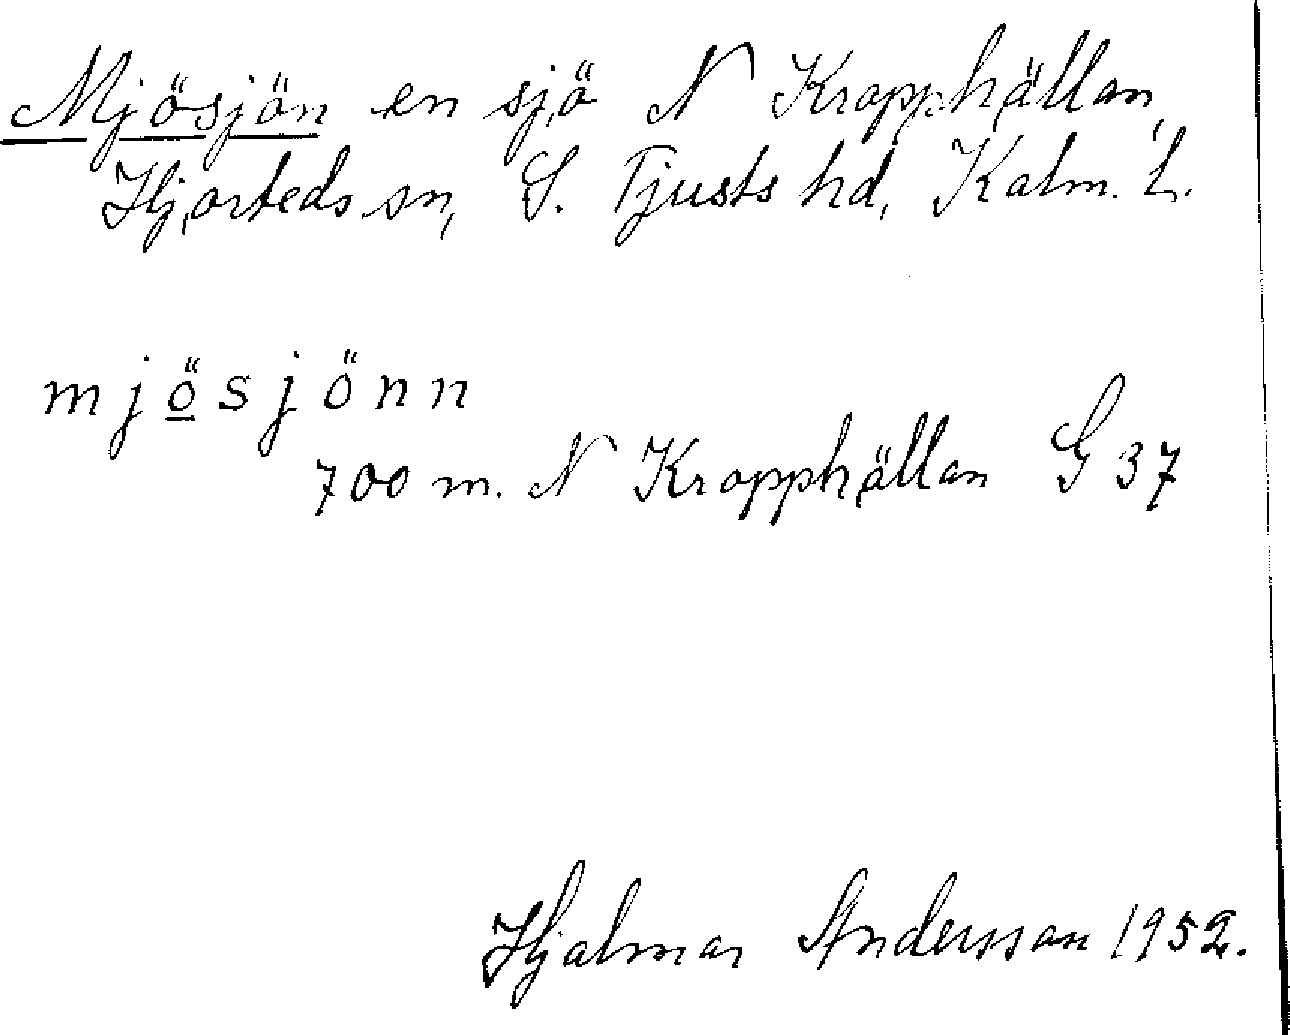 Mjösjön en sjö N Kropphällan,
Hjorteds sn, S. Tjusts hd, Kalm. L.
mjösjönn
700 m. N Kropphällan G 37
Hjalmar Andersson 1952.